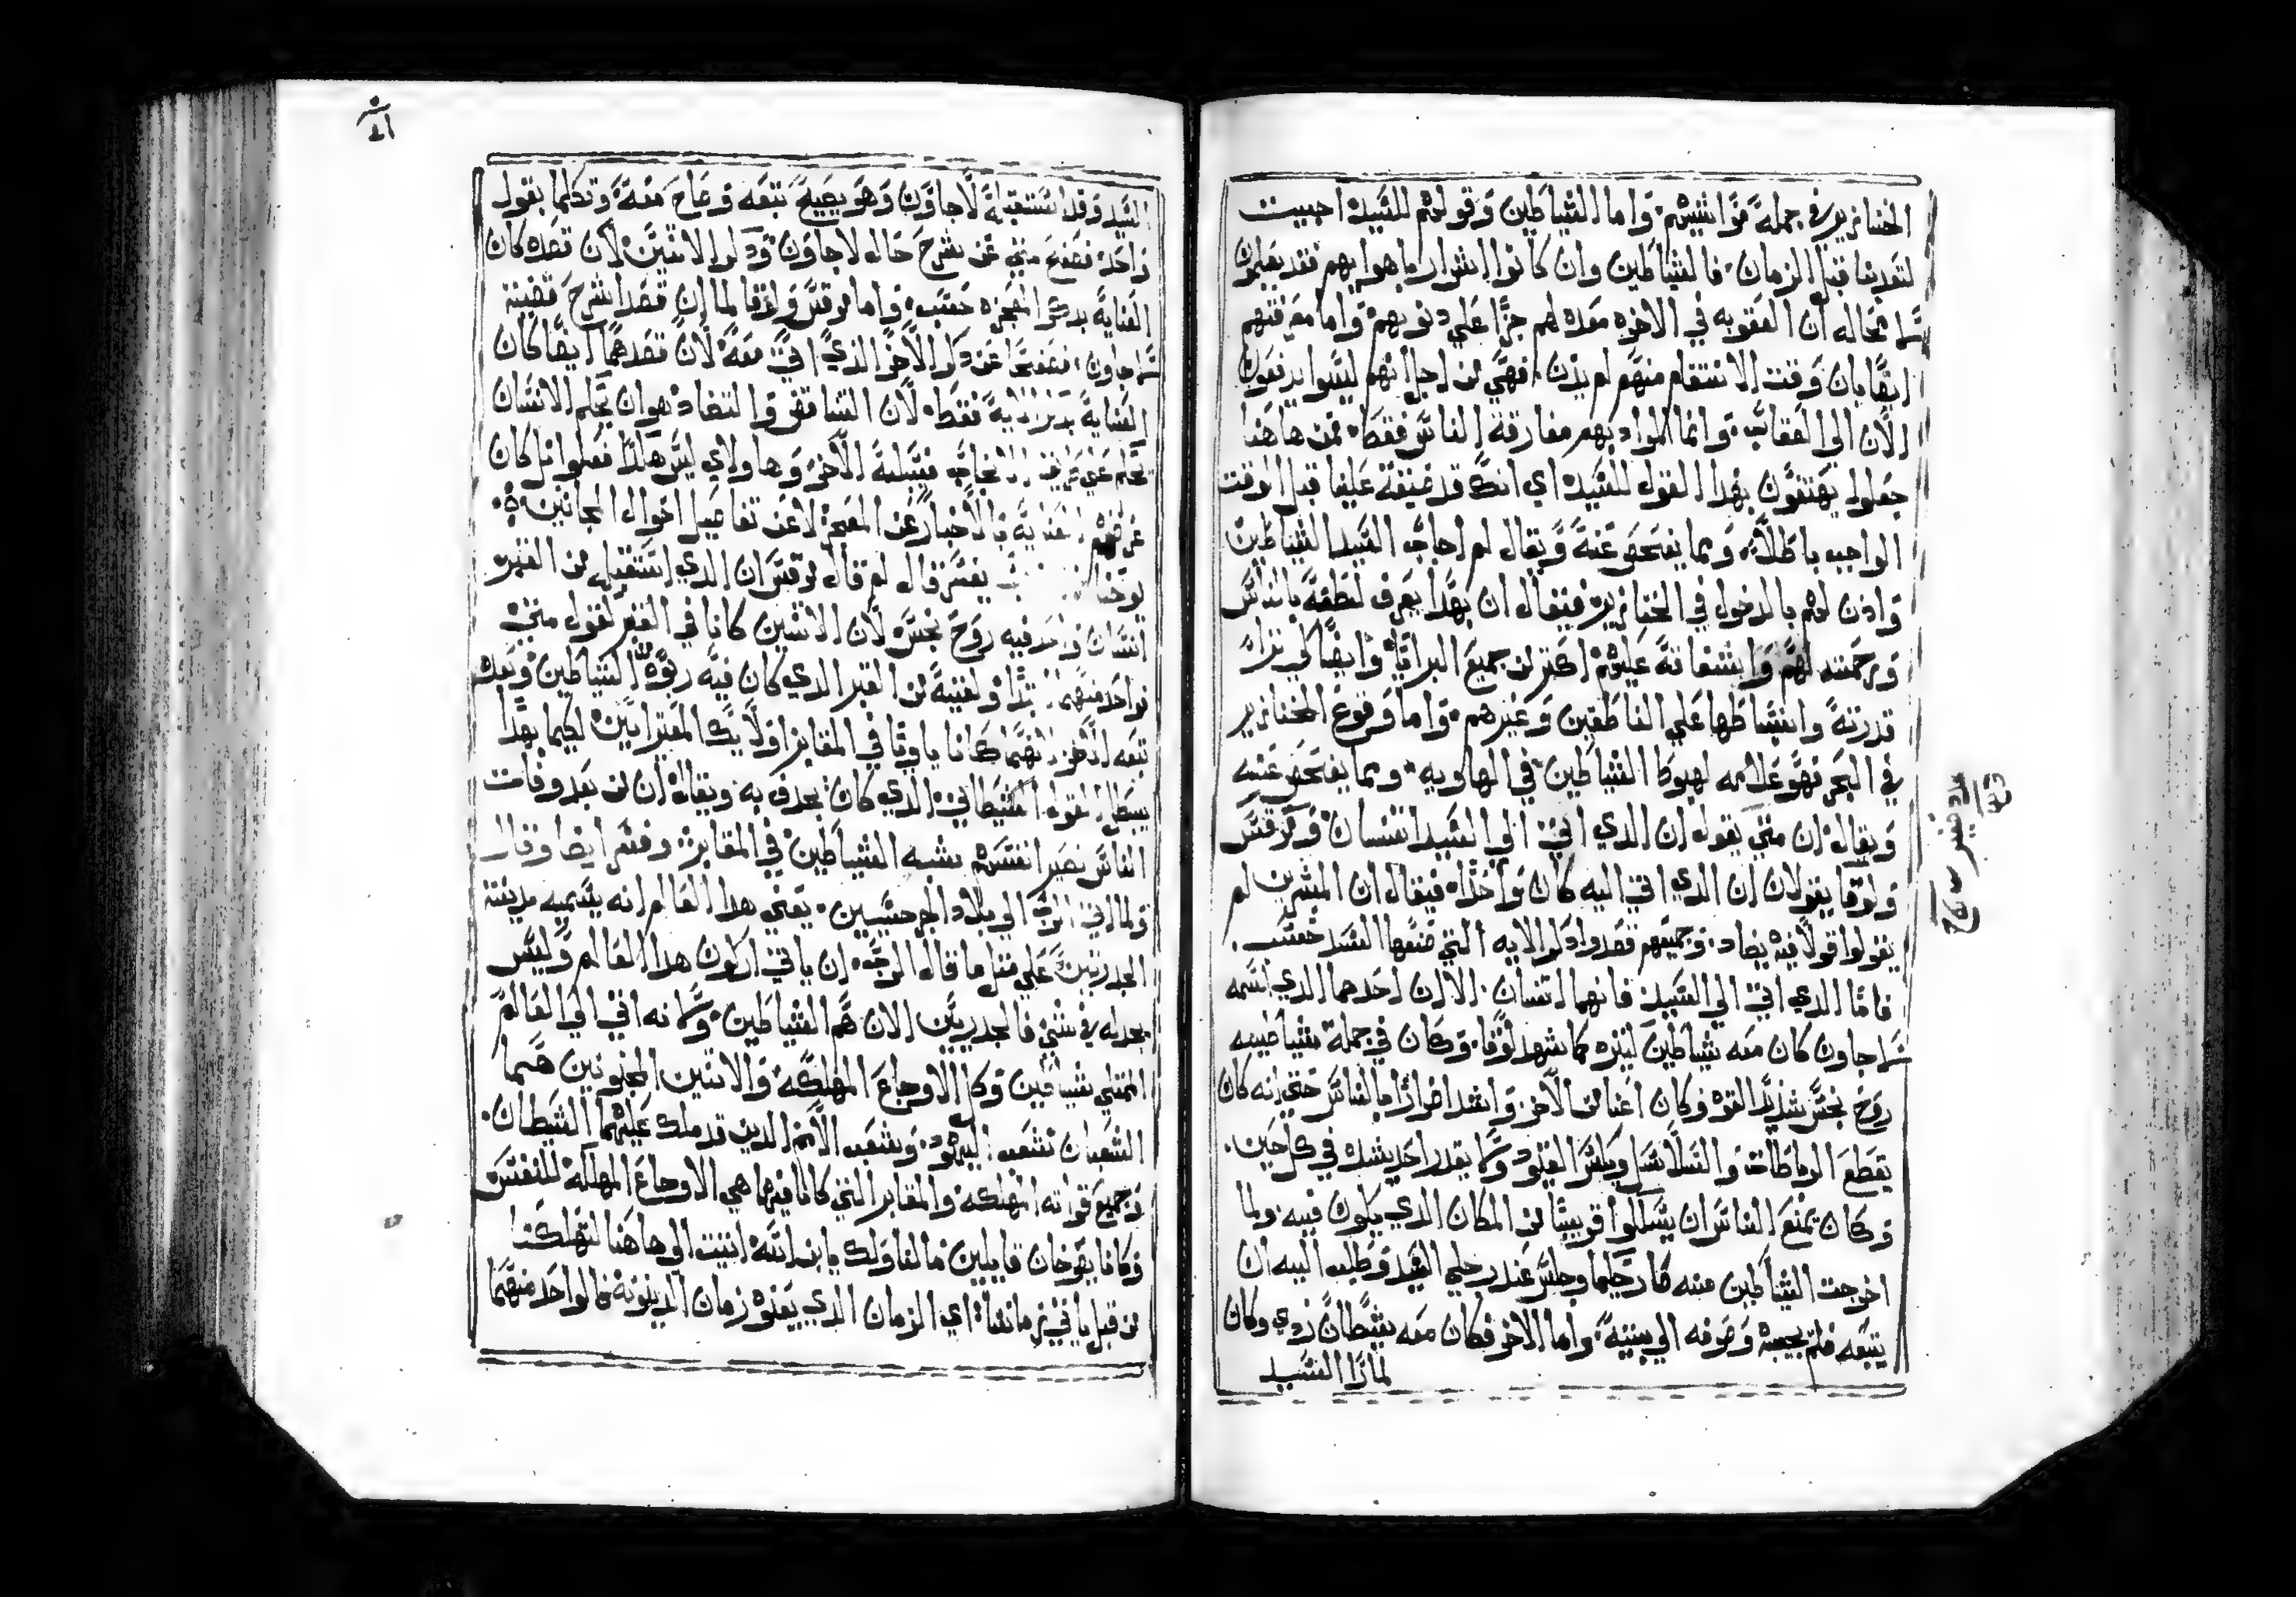 الخنازير في جملة مواشيهم. واما الشياطين وقولهم للسيد اجييت
لتعدبنا قبل الزمان. فالشياطين وان كانوا اشرار باهوايهم فقد يعلمون
محاله ان العقوبه في الاخره معده لهم جزا علي دنوبهم. واما معرفتهم
ايضا بان وقت الانتقام منهم لم يدن. فهي من اجل انهم ليسوا يدفعون
الان الي العقاب. وانما المراد بهم مفارقة الناس فقط. فمن هاهنا
جعلوا يهتفون بهدا القول للسيد اي انك قد علينا قبل الوقت
الواجب باطلا. ومما يفحص عنه ويقال لم اجاب السيد الشياطين
وادن لهم بالدخول في الخنازير. فيقال ان بهدا يعرف لطفه بالناس
ورحمته لهم واشفاقه عليهم اكتر من جميع البرايا. وايضا لكي نرا
قدرته وانبساطها علي الناطقين وغيرهم. واما وقوع الخنازير
في البحر فهو علامه لهبوط الشياطين في الهاويه. ومما يفحص عنه
ويقال ان متي يقول ان الدي اتي الي السيد انسان. ومرقس
ولوقا يقولان ان الدي اتي اليه كان واحدا. فيقال ان المبشرين لم
يقولوا قولا فيه يضاد. وجميعهم قصدوا دكر الايه التي صنعها السيد حسب.
فاما الدي اتي الي السيد فانهما اتنان. الا ان احدهما الدي اسمه
لاجاون كان معه شياطين كتيره كما شهد لوقا. وكان في جملة شياطينه
روح نجس شديد القوه وكان اعنا من الاخر واشد اضرارا بالناس حتي انه كان
يقطع الرباطات والسلاسل ويكسر القيود وما يقدر احد يشده في كل حين.
وكان يمنع الناس ان يسلكوا قريبا من المكان الدي يكون فيه. ولما
اخرجت الشياطين منه صار حكيما وجلس عند رجلي السيد وطلب اليه ان
يتبعه فلم يجيبه وصرفه الي بيته. واما الاخر فكان معه شيطان ردي وكان
لما را السيد
السيد وقد استقبله لاجاون وهو يجيه تبعه وصاح معه وتكلما بقول
واحد. فصفح متي عن شرح حال لاجاون ودكر الاتنين لان قصده كان
العنايه بدكر المعجزه حسب. واما مرقس ولوقا لما ان قصدا شرح قضية
لاجاون. فصفحا عن دكر الاخر الدي اتي معه. لان قصدهما ايضا كان
العنايه فقط. لان التناقض والتضاد هو ان يحكم الانسان
فيسلبه الاخر وهاولاي ليس هكدا فعلوا بل كان
غرضهم العنايه بالاخبار عن المعجز لا عن تفاصيل احوال المجانين.
يوحنا يفسر قال لم قال مرقس ان الدي استقبله من القبر
انسان واحد فيه روح نجس لان الاتنين كانا في القبر لقول متي.
لواحد منهما ولقيه من القبر الدي كان فيه ربوة الشياطين وبعده
تبعه الاخر. لانهما كانا ياويا في المقابر اوليك المعترايين لكيما بهدا
يبطل القول الشيطاني الدي كان يجدف به ويقال ان من بعد وفات
الناس تصير انفسهم بشبه الشياطين في المقابر. وفسر ايضا وقال
ولما اتي الرب الي بلاد الجرجسيين. يعني هدا العالم انه يسميه مدينة
الجدريين علي متل ما قال الرب. ان ياتي اركون هدا العالم وليس
يجد له في شي فالجدريين الان هم الشياطين. وكانه اتي الي العالم
الممتلي شياطين وكل الاوجاع المهلكه والاتنين المجنونين هما
الشعبان شعب اليهود. وشعب الامم الدين قد ملك عليهما الشيطان.
وجميع قواته المهلكه والمقابر التي كانا فيها هي الاوجاع المهلكة للنفس
وكانا يصرخان قايلين ما لنا ولك يا ابن الله. اتيت الي هاهنا لتهلكنا
من قبل ياتي زماننا. اي الزمان الدي يعنوه زمان الدينونه فالواحد منهما